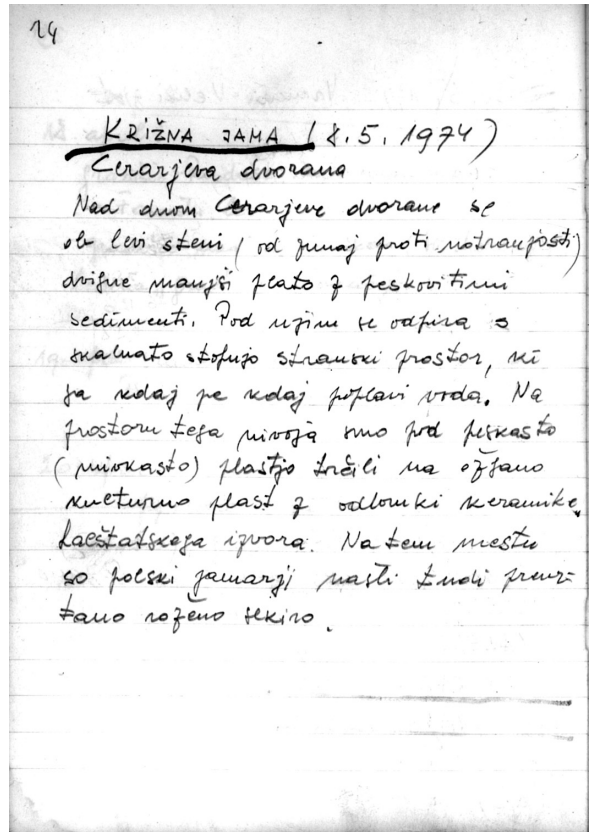 24
KRIŽNA JAMA (8.5.1974)
Cerarjeva dvorana
Nad dnom Cerarjeve dvorane se
ob levi steni (od zunaj proti notranjosti)
dvigne manjši plato z peskovitimi
sedimenti. Pod njim se odpira s
skalnato stopnjo stranski prostor, ki
ga kdaj pe kdaj poplavi voda. Na
prostoru tega nivoja smo pod peskasto
(mivkasto) plastjo trčili na ožgano
kulturno plast z odlomki keramike
halštatskega izvora. Na tem mestu
so polski jamarji našli tudi prevr=
tano roženo sekiro.